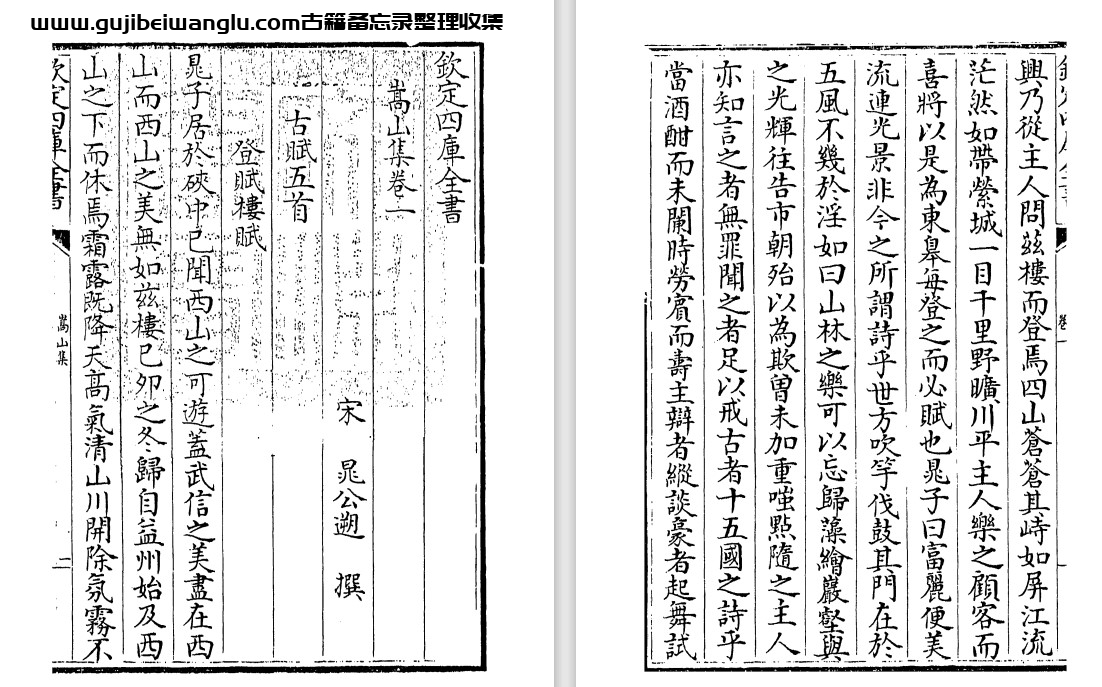 www.gujibeiwanglu.com古籍备忘录整理收集
欽定四庫全書
嵩山集卷一
宋 晁公遡 撰
古賦五首
登賦樓賦
晁子居於硤中已聞西山之可遊蓋武信之美盡在西
山而西山之美無如兹樓已夘之冬歸自益州始及西
山之下而休焉霜露既降天髙氣清山川開除氛霧不
欽定四庫全書
嵩山集
二
興乃從主人問兹樓而登焉四山蒼蒼其峙如屏江流
茫然如帶縈城一目千里野曠川平主人樂之顧客而
喜將以是為東臯每登之而必賦也晁子曰富麗便美
流連光景非今之所謂詩乎世方吹竽伐鼓其門在於
五風不幾於淫如曰山林之樂可以忘歸藻繪巖壑與
之光輝往告市朝殆以為欺曽未加重嗤㸃隨之主人
亦知言之者無罪聞之者足以戒古者十五國之詩乎
當酒酣而未闌時勞賔而壽主辯者縱談豪者起舞試